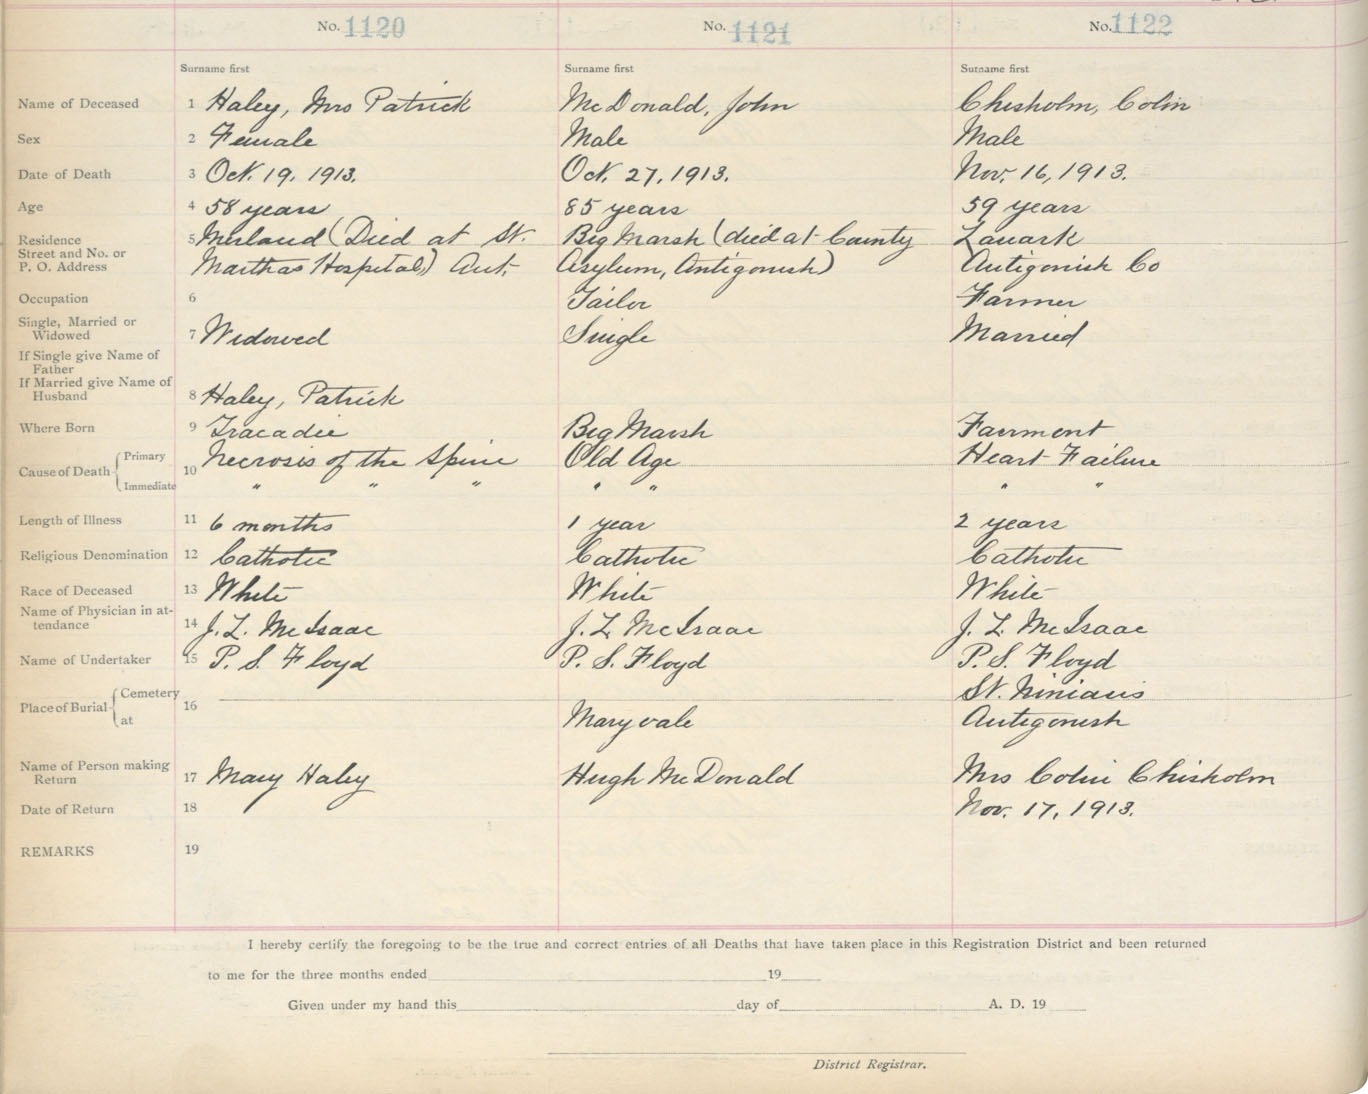 No. 1120 No. 1121 No. 1122
Surname first Surname first Surname first
Name of Deceased 1 Haley, Mrs Patrick McDonald, John Chisholm, Colin
Sex 2 Female Male Male
Date of Death 3 Oct. 19. 1913. Oct. 27, 1913. Nov. 16, 1913.
Age 4 58 years 85 years 59 years
Residence 5 Merland (Died at St. Big Marsh (died at County Lanark
Street and No. or
P. O. Address Marthas Hospital) Ant. Asylum, Antigonish) Antigonish Co
Occupation 6 Tailor Farmer
Single, Married or
Widowed 7 Widowed Single Married
If Single give Name of
Father
If Married give Name of
Husband 8 Haley, Patrick
Where Born 9 Tracadie Big Marsh Fairmont
Cause of Death Primary 10 Necrosis of the Spine Old Age Heart Failure
Immediate " " " " " " "
Length of Illness 11 6 months 1 year 2 years
Religious Denomination 12 Catholic Catholic Catholic
Race of Deceased 13 White White White
Name of Physician in at-
tendance 14 J. L. McIsaac J. L. McIsaac J. L. McIsaac
Name of Undertaker 15 P. S. Floyd P. S. Floyd P. S. Floyd
Place of Burial Cemetery 16 St. Ninians
at Maryvale Antigonish
Name of Person making
Return 17 Mary Haley Hugh McDonald Mrs Colin Chisholm
Date of Return 18 Nov. 17, 1913.
REMARKS 19
I hereby certify the foregoing to be the true and correct entries of all Deaths that have taken place in this Registration District and been returned
to me for the three months ended 19
Given under my hand this day of A. D. 19
District Registrar.